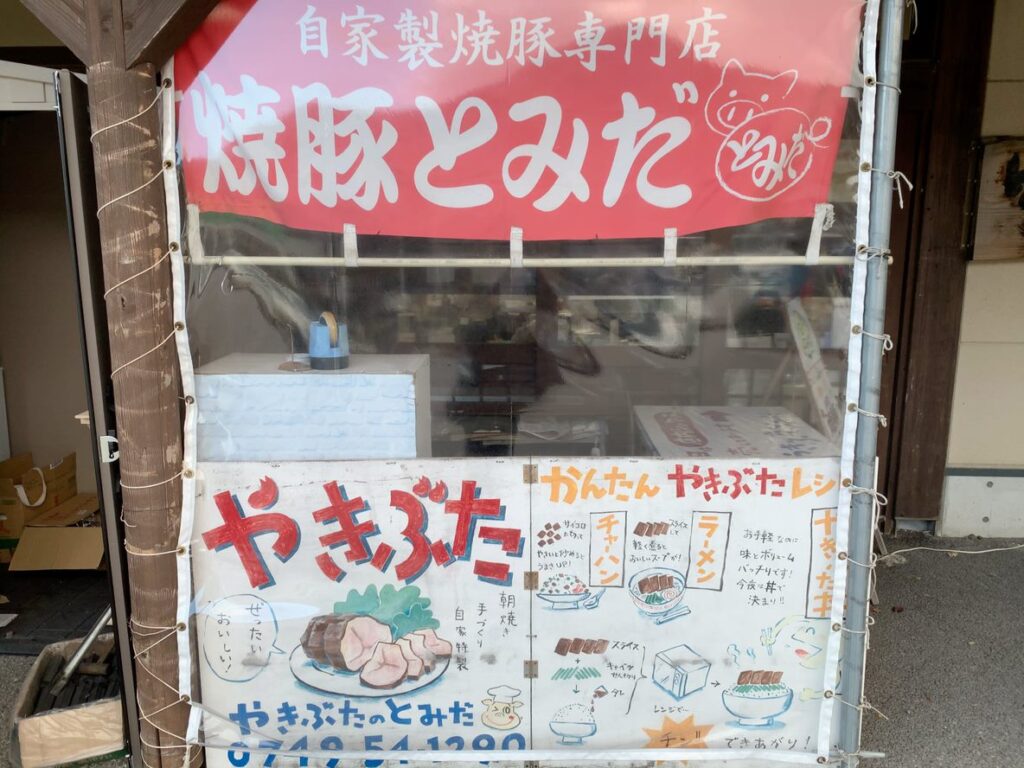 自家製焼豚専門店
焼豚とみだ
とみだ
やきぶた
ぜったい
おいしい！
朝焼き
手づくり
自家特製
やきぶたのとみだ
0749-54-1290
かんたん やきぶたレシ
チャーハン
サイコロ
やさいと炒めると
うまさUP！
ラーメン
スライス
して
軽く煮ると
おいしいスープが！
お手軽なのに
味とボリューム
バッチリです！
今夜は丼で
決まり!!
スライス
キャベツ
せんぎり
タレ
レンジで〜
チン
できあがり！